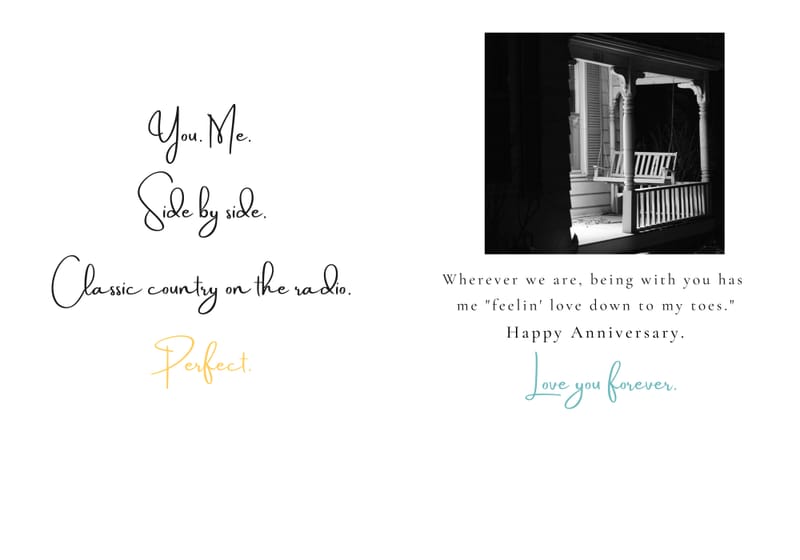 You. Me.
Side by side.
Classic country on the radio.
Perfect.
Wherever we are, being with you has
me "feelin' love down to my toes."
Happy Anniversary.
Love you forever.